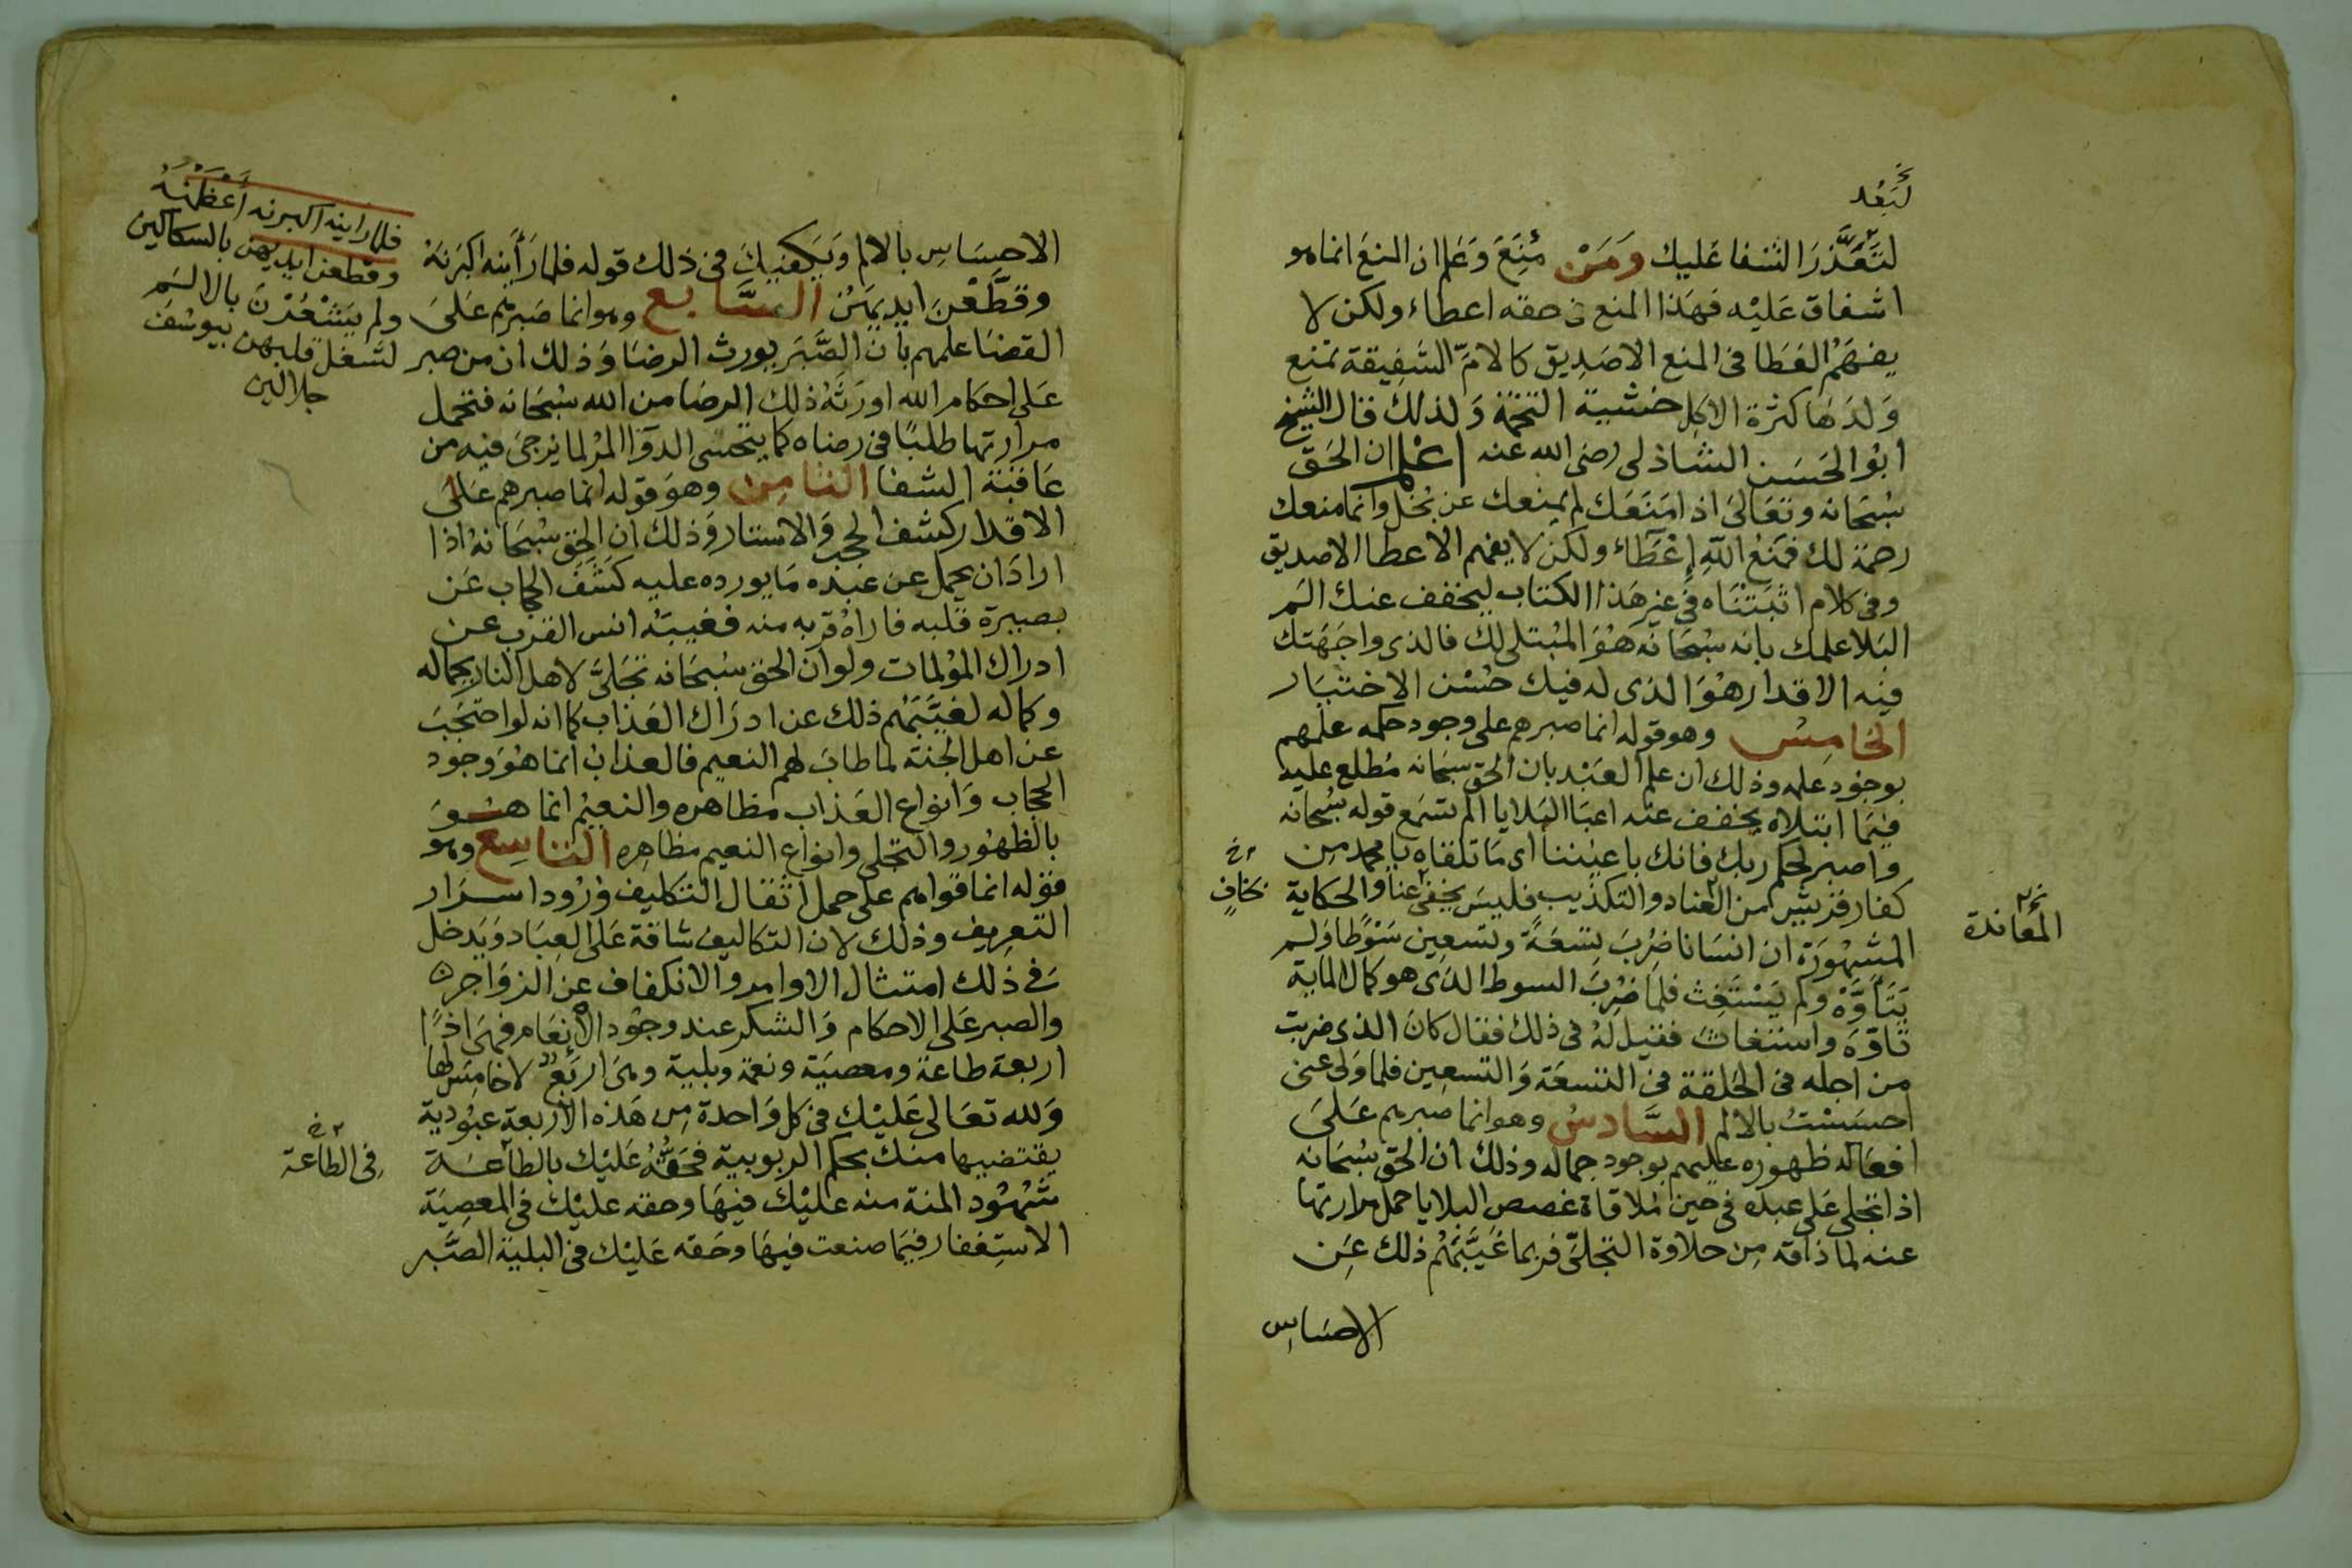 لَبَعُد
لتَعَذَّرَ الشفا عَليك وَمَن مُنِعَ وَعَلم ان المنعَ انما هو
اشفاق عَليْه فهَذا المنع فى حقه اعطاء ولكن لا
يفهَمُ العَطا فى المنع الا صَدِيق كالامّ الشَفِيقة تمنع
وَلدَهَا كثرة الاكِل خشية التخمة وَلذلكَ قال الشيخ
ابُو الحَسَن الشاذلى رضى الله عنه اعْلم ان الحَقّ
سُبحَانه وتعَالىَ اذا مَنَعَك لم يمنعك عن بُخل وانما منعك
رحمة لك فمَنعُ اللّهِ إعْطَاء ولكن لا يفهم الاعطا الا صديق
وفى كلام اثبَتنَاه فى غير هَذا الكتاب ليخفف عنك الَم
البَلا علمك بانه سُبحَانه هُوَ المُبتلى لك فالذى واجَهَتك
فيْه الاقدار هُوَ الذى له فيك حُسْن الاختيَار
الخامِسُ وهو قوله انما صبرهم على وجود حكمه علمهم
بوجُود علمه وذلك ان علم العَبْد بان الحق سبحانه مُطلع عليه
فيْمَا ابتلاه يخفف عنه اعبَا البَلايا الم تسمَع قوله سُبحانه
واصبر لحكم ربك فانك باعيُننا أى مَا تلقاه يا محمد مِن
كفار قريشٍ من العناد والتكذيب فليسَ يخفى عنا والحكاية
المشهُورَة ان انسَانا ضُربَ تِسْعَةً وتسعِين سَوْطا وَلم
يَتَأوَّهْ ولم يَسْتَغِث فلما ضُرِبَ السوط الذى هو كمال الماية
تاوَّهَ واستغاثَ فقيل لهُ فى ذلك فقال كانَ الذى ضربت
من اجله فى الحَلقة فى التسعَة وَالتسعِين فلما وَلى عنى
احسَسْتُ بالالم السَّادسُ وهو انما صبرهم عَلىَ
افعَاله ظهوره عليهم بوجود جماله وذلك ان الحق سُبحَانه
اذا تجلى عَلى عبده فى حين مُلاقاة غصص البلايا حمل مرارتها
عنه لما ذاقه مِن حلاوة التجلىّ فربما غَيَّبَهُم ذلك عَن
الاحسَاسِ
نخ
المعَاندة
نخ
بخافٍ
الاحِسَاسِ بالالم وَيَكفِيكَ فى ذلك قوله فلما رَأيْنه اكبَرْنَهْ
وقطَّعْنَ ايديَهُنّ السَّابع وهو انما صَبرهم عَلىَ
القضَا علمهم بانّ الصَّبَر يورث الرضَا وَذلك ان من صبر
عَلى احكام الله اورَثَهُ ذلك الرضَا من الله سُبحَانه فتحمل
مرارتها طلبًا فى رضاه كما يتحسى الدوَآ المرْ لما يرجىَ فيه من
عَاقبَة الشفا الثامِن وهوَ قوله انما صبرهم عَلىَ
الاقدار كشف الحجب وَالاستار وَذلك ان الحَق سُبحَانهُ اذا
ارادَ ان يحمل عن عبْده مَا يورده عليه كشَفَ الحجاب عَن
بصيرة قلبه فاراهُ قربه منه فغيبَهُ انس القرب عن
ادراك المؤلمات ولو ان الحق سُبحَانه تجَلىَّ لاهل النار بجماله
وكماله لغيَّبَهُم ذلك عن ادرَاك العَذاب كما انه لو احتَجَبَ
عن اهل الجنة لما طابَ لهم النعيم فالعذابُ انما هُوَ وجود
الحِجَاب وَانواع العَذاب مظاهره والنعيْم انما هُوَ
بالظهُور والتجلى وانواع النعيم مظاهِره التاسِع وهو
قوله انما قواهم على حمل اثقال التكليف وُرُود اسرَار
التعرِيف وذلك لان التكاليف شاقة عَلى العِبَاد وَيَدخل
فى ذلك امتثال الاوامر والانكفاف عن الزوَاجر
والصبر عَلى الاحكام وَالشكر عند وجُود الانعَام فهىَ اذًا
اربعة طاعة ومعصيَة ونعمة وبلية وهىَ اربَعٌ لا خامِسَ لها
وَلله تعَالى عَليْك فى كل وَاحدة مِن هَذه الاربعة عبُودية
يقتضيها منك بحكم الربوبية فحَقُّهُ عَليْك بالطاعَة
شُهُود المنة منه عليْك فيْهَا وحقه عليْك فى المعصِيَة
الاستِغفار فيمَا صنعت فيْهَا وحَقه عَليْك فى البلية الصَّبر
فلما راينه اكبرنه أعْظَمْنَهُ
وقطعن ايديهن بالسكاكين
ولم يَشْعُرْنَ بالالم
لشغل قلبهن بيوسُفَ
جلالين
نخ
فِى الطاعة